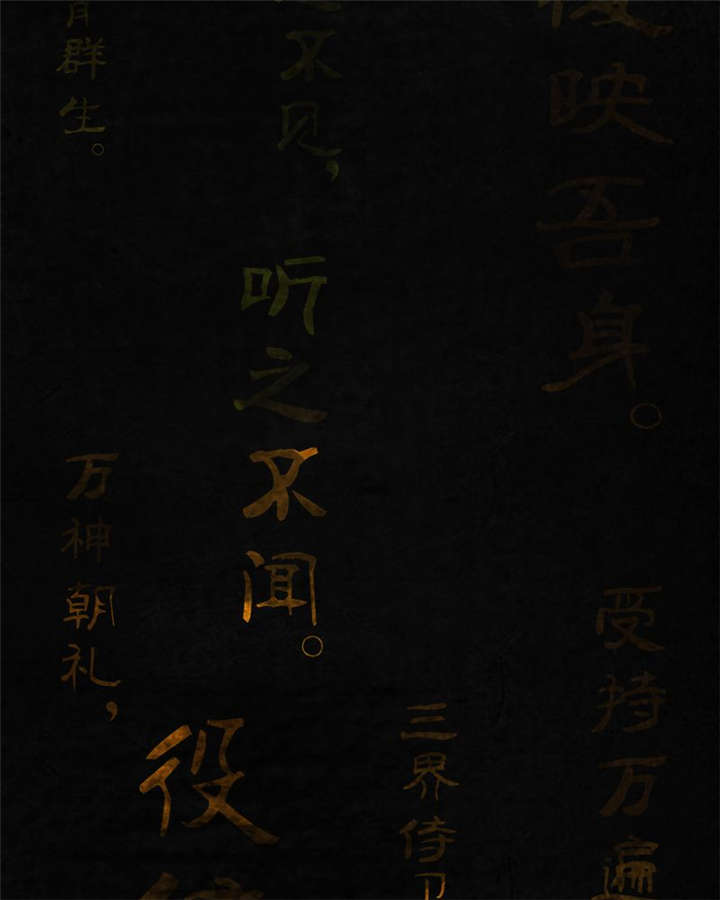 映吾身。
不见，
听之不闻。
群生。
受持万遍
三界侍卫
万神朝礼，
役